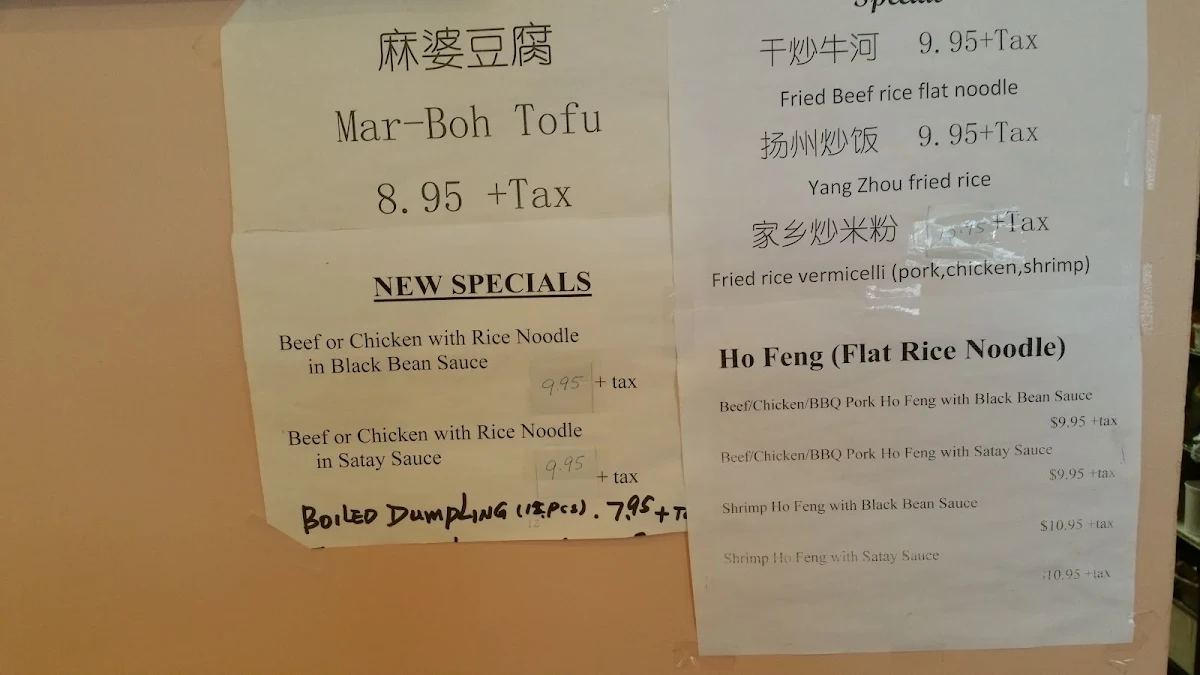 麻婆豆腐
Mar-Boh Tofu
8.95 +Tax
NEW SPECIALS
Beef or Chicken with Rice Noodle
in Black Bean Sauce
9.95 + tax
Beef or Chicken with Rice Noodle
in Satay Sauce
9.95 + tax
BOILED DUMPLING (12 pcs). 7.95 + T
Special
干炒牛河 9.95+Tax
Fried Beef rice flat noodle
扬州炒饭 9.95+Tax
Yang Zhou fried rice
家乡炒米粉 +Tax
Fried rice vermicelli (pork,chicken,shrimp)
Ho Feng (Flat Rice Noodle)
Beef/Chicken/BBQ Pork Ho Feng with Black Bean Sauce
$9.95 +tax
Beef/Chicken/BBQ Pork Ho Feng with Satay Sauce
$9.95 +tax
Shrimp Ho Feng with Black Bean Sauce
$10.95 +tax
Shrimp Ho Feng with Satay Sauce
10.95 +tax